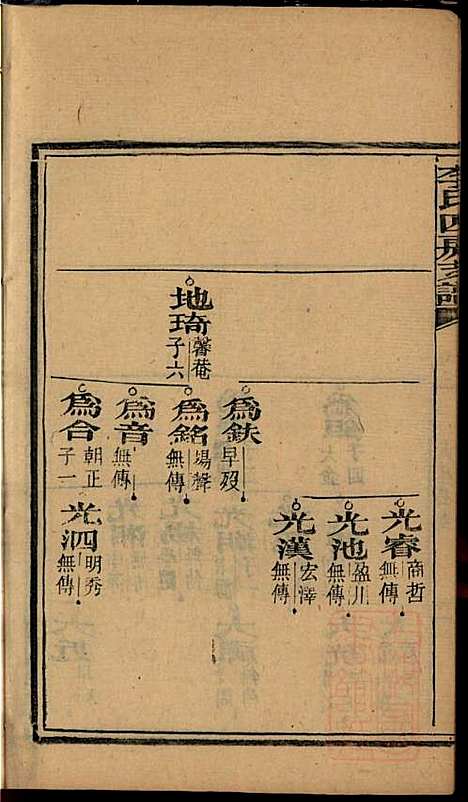 李氏四房支譜
地琦 馨菴 子六
爲鉄 早歿
爲銘 場聲 無傳
爲音 無傳
爲合 朝正 子一
光睿 商哲 無傳
光池 盈川 無傳
光漢 宏澤 無傳
光泗 明秀 無傳